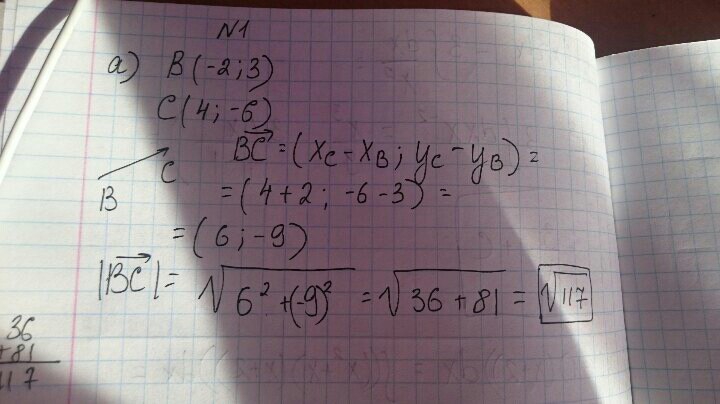 N1
a) B(-2;3)
C(4;-6)
B C
BC→ = (x_C - x_B; y_C - y_B) =
= (4+2; -6-3) =
= (6;-9)
|BC→| = √(6² + (-9)²) = √(36 + 81) = √117
36
+81
117